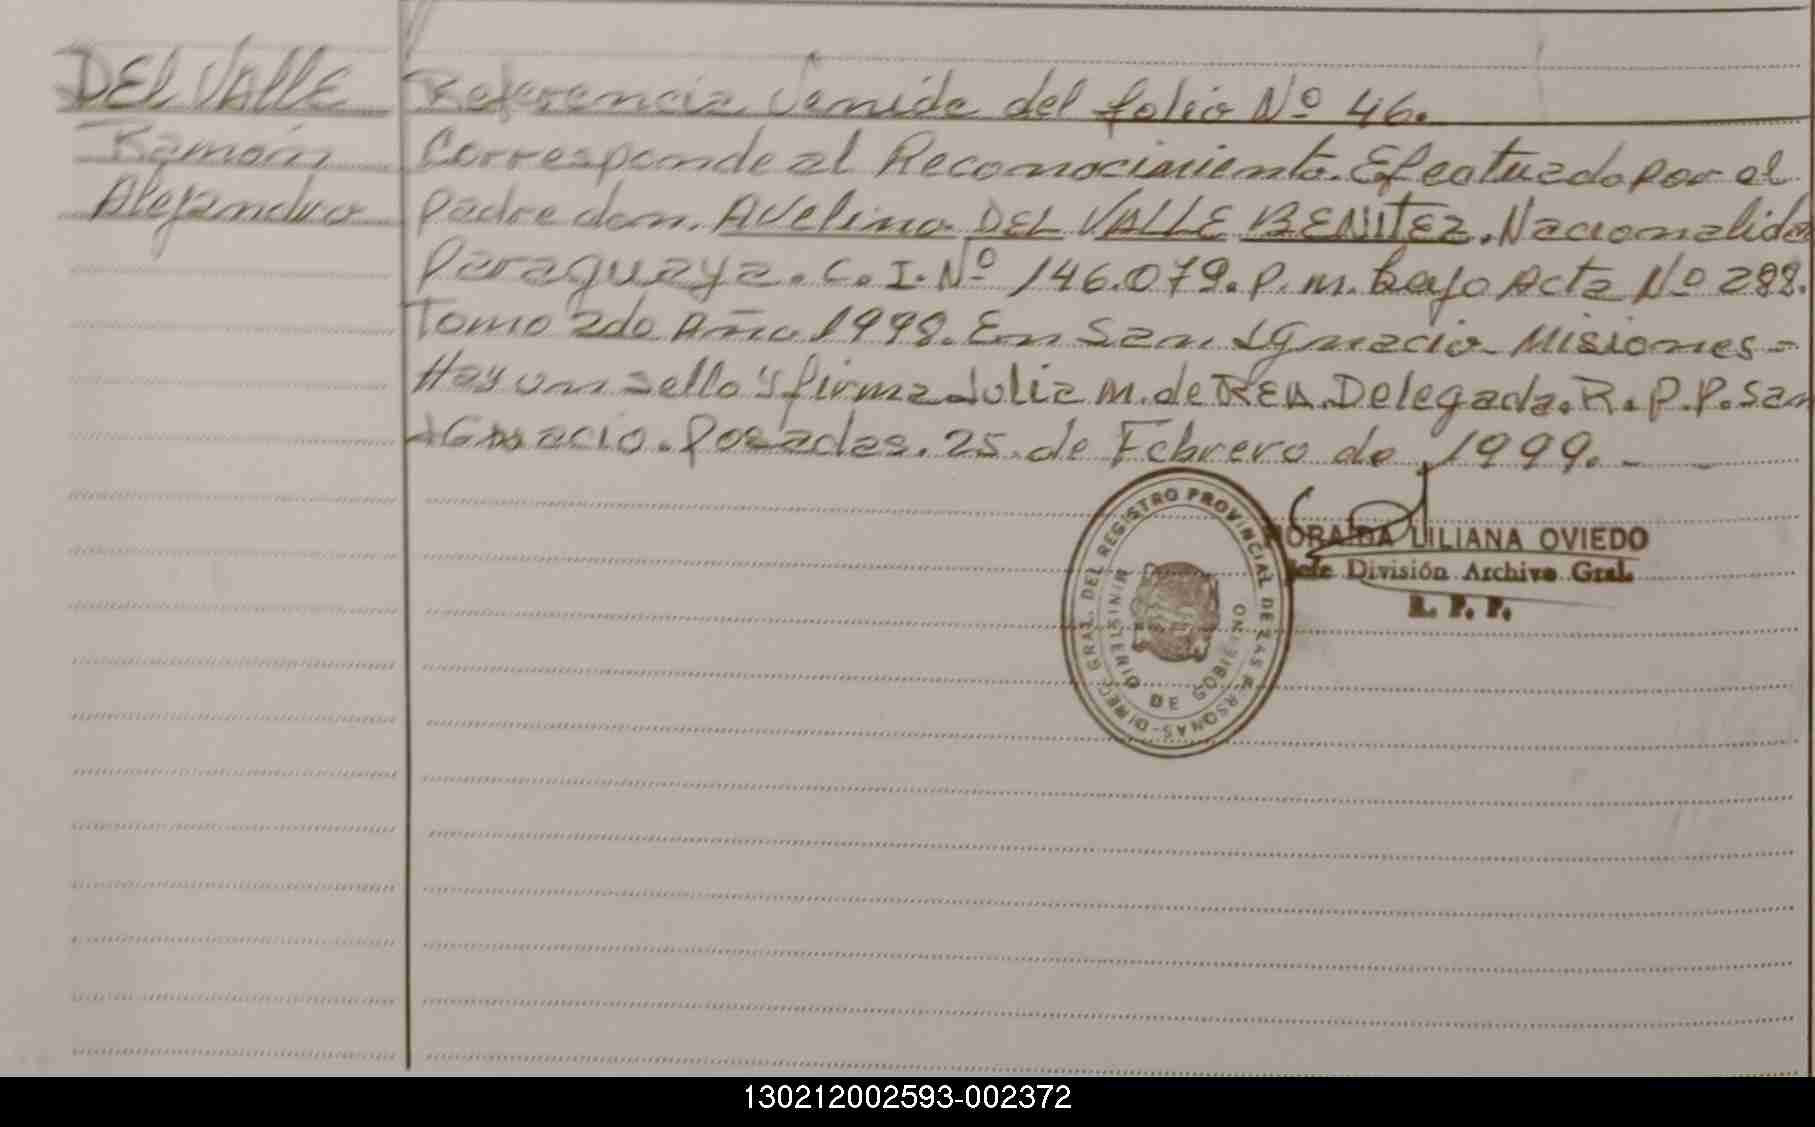 DEL VALLE
Ramón
Alejandro
Referencia Venida del folio Nº 46.
Corresponde al Reconocimiento. Efectuado por el
padre don. Avelino DEL VALLE BENITEZ. Nacionalidad
Paraguaya. C. I. Nº 146.079. P. M. bajo Acta Nº 288.
Tomo 2do Año 1998. En San IGnacio Misiones =
Hay un sello y firma Julia M. de REA. Delegada. R. P. P. San
IGnacio. Posadas. 25 de Febrero de 1999. -
DIRECC. GRAL. DEL REGISTRO PROVINCIAL DE LAS PERSONAS
MINISTERIO DE GOBIERNO
LILIANA OVIEDO
Jefe División Archivo Gral.
R. P. P.
130212002593-002372